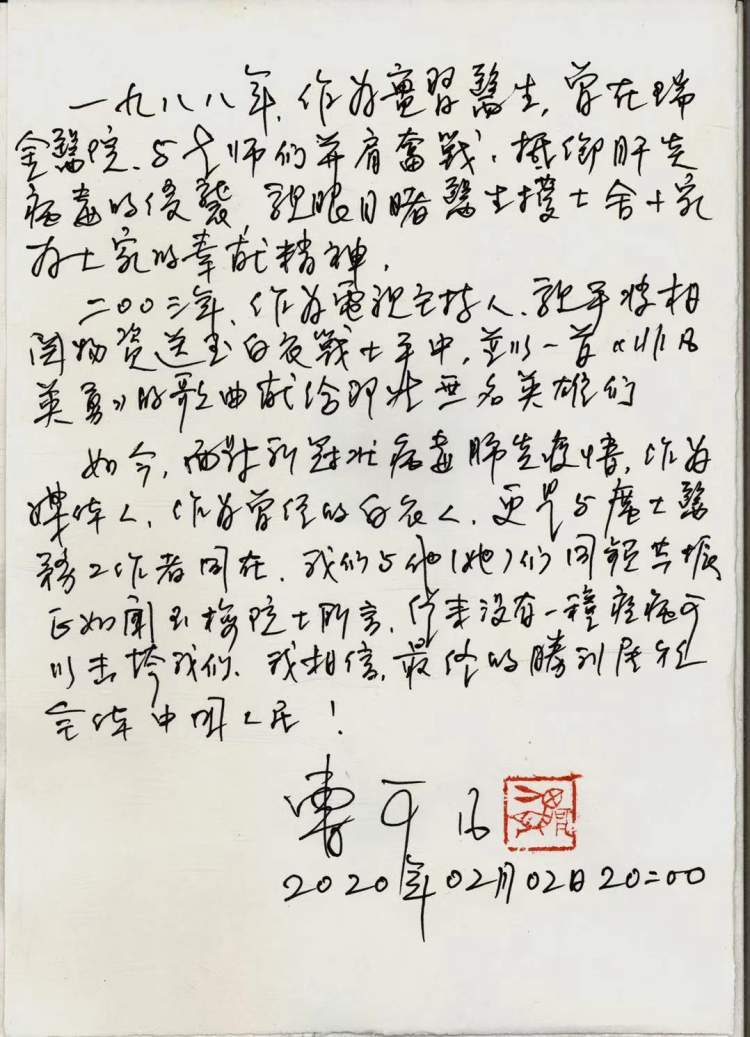 一九八八年，作为實習醫生，曾在瑞
金醫院，与老师们并肩奮戰，抵御肝炎
病毒的侵襲，親眼目睹醫生護士舍小家
为大家的奉献精神。
二〇〇三年，作为電視主持人，親手將相
関物資送至白衣戰士手中，並以一首《非凡
英勇》的歌曲献给那些無名英雄们
如今，面對新冠状病毒肺炎疫情，作为
媒体人，作为曾经的白衣人，更是与廣大醫
務工作者同在，我们与他（她）们同频共振
正如聞玉梅院士所言，從来没有一種疫病可
以击垮我们，我相信，最终的勝利属於
全体中国人民！
曹可凡
2020年02月02日20:00